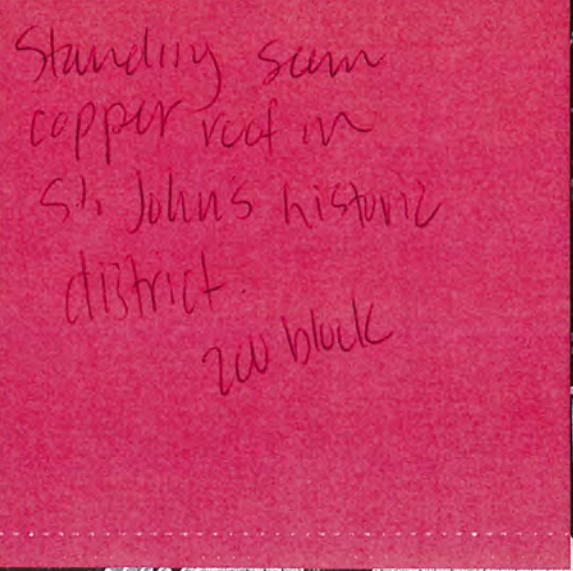 Standing seam
copper roof in
St. John's historic
district.
200 block